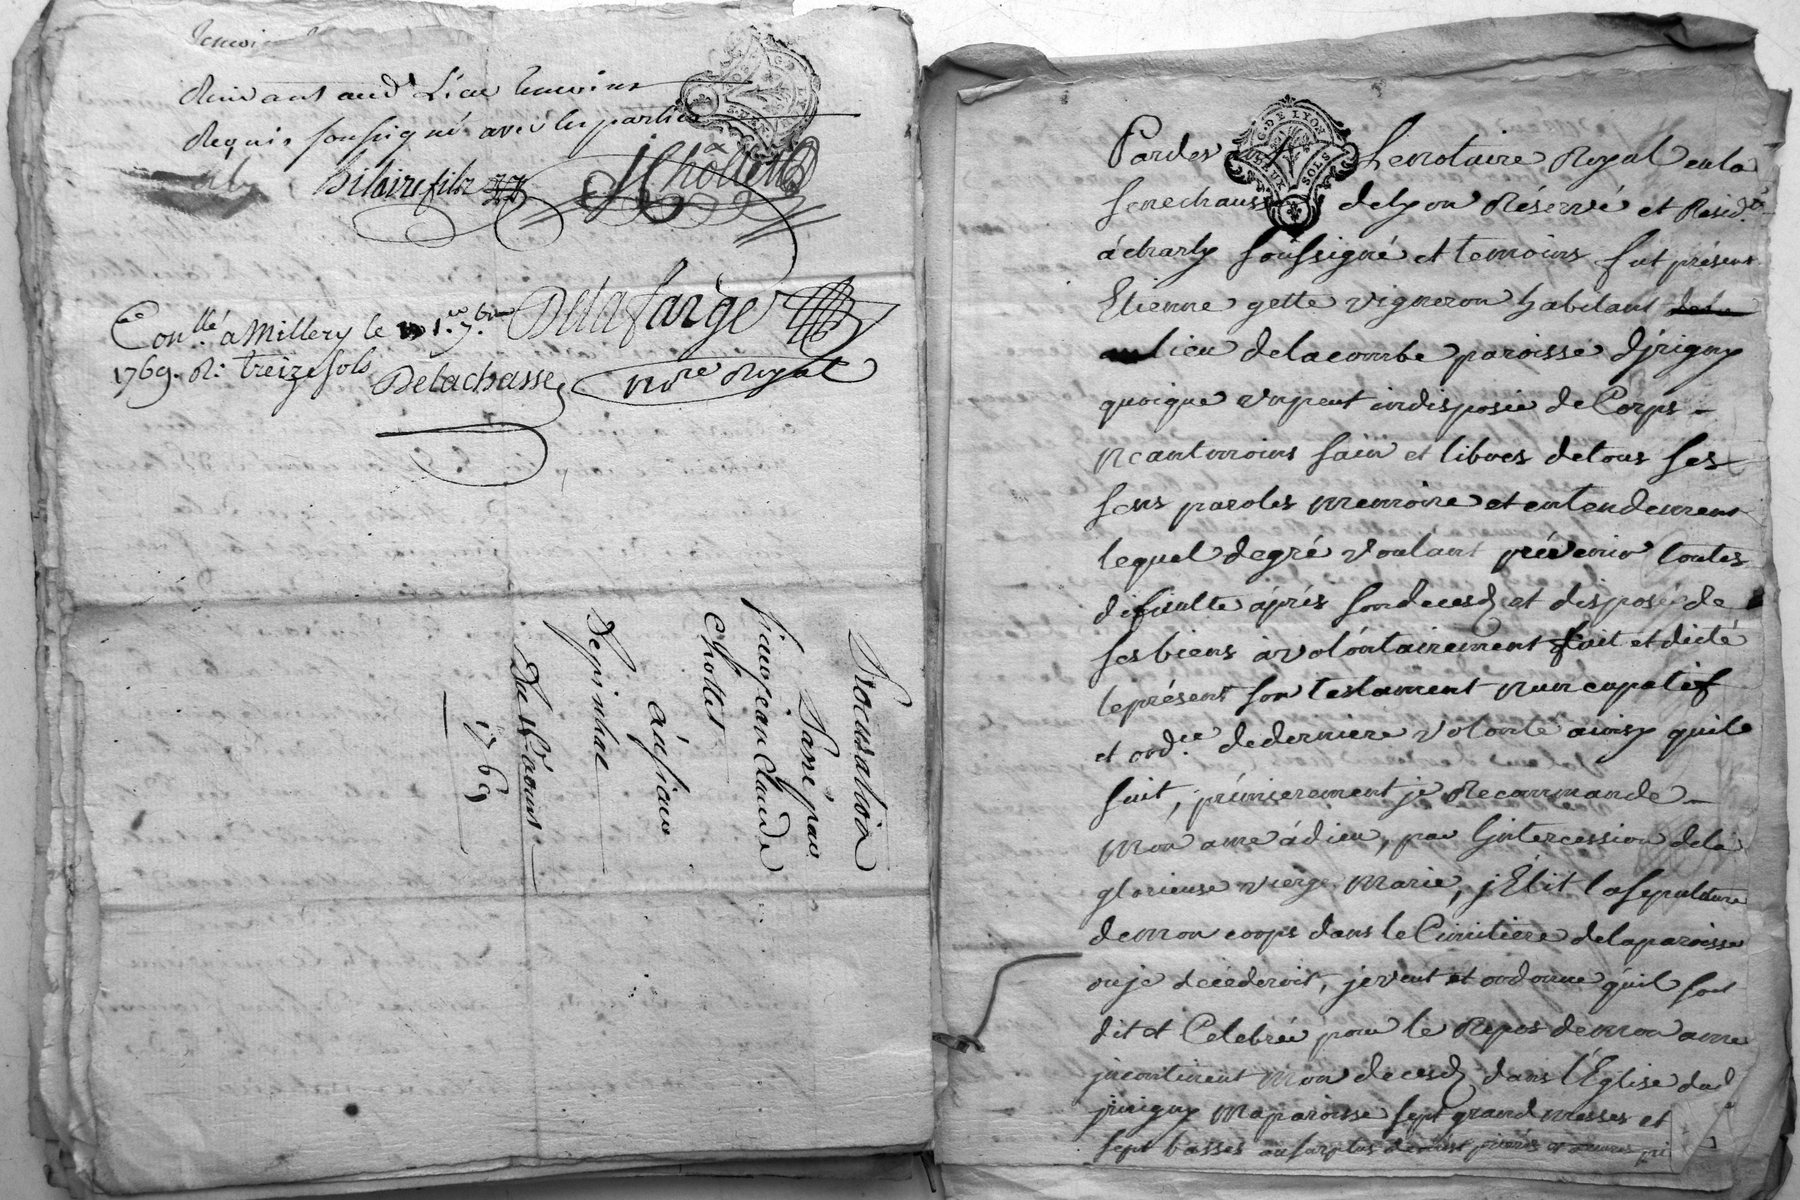 demeurants aud. Lieu temoins
Requis soussignés avec les parties
Dilaire fils
JC hollet
Delafarge
Con.llé a Millery le 1.er 7.bre
1769. R: treize sols
Delachasse
no.re Royal
Procuration
Passé par
sieur jean Claude
Chollet
à ésieur
Despinhac
Du 1769
Pardevant Le notaire Royal en la
senechaussée de lyon Réservé et Resid.t
à charly soussigné et temoins fut présent
Etienne gette vigneron habitant
au lieu de la combe paroisse d'jrigny
quoique un peut indisposée de Corps
neantmoins sain et libres de tous ses
sens paroles memoire et entendement
lequel de gré voulant prévenir toutes
dificulte aprés son decesd et disposé de
ses biens à volontairement fait et dicté
le présent son testament nuncupatif
et ord.ce de derniere volonté ainsy quil
suit, prémierement je Recommande
mon ame à dieu, par l'jntercession de la
glorieuse vierge Marie, j'Elit la sepulture
de mon coops dans le Cimitiere de la paroisse
ou je décéderoit, je veut et ordonne quil soit
dit et Celebrée pour le Repos de mon ame
jncontinent mon decesd dans l'Église dud.
jrigny ma paroisse sept grand messes et
sept basses au surplus
G. DE LYON
SOLS